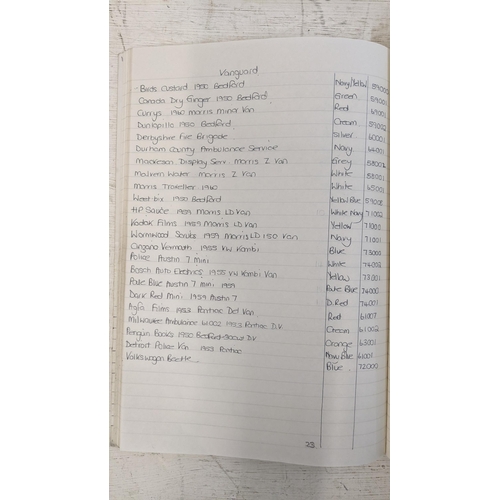 Vanguard
- Birds Custard 1950 Bedford Navy/Yellow 59000
Canada Dry Ginger 1950 Bedford Green 59001
Currys 1960 Morris Minor Van Red
Dunlopillo 1950 Bedford Cream 59002
Derbyshire Fire Brigade Silver 60001
Durham County Ambulance Service Navy
Display Serv. Morris Z Van Grey 88002
Malvern Water Morris Z Van White 88001
Morris Traveller 1960 White 65001
Weet bix 1950 Bedford Yellow Blue 59005
HP Sauce 1959 Morris LD Van White Navy 71002
Kodak Films 1959 Morris LD Van Yellow 71000
Wormwood Scrubs 1959 Morris LD 150 Van Navy 71001
Cinzano Vermouth 1955 VW Kombi Blue 73000
Police Austin 7 Mini White 74002
Bosch Auto Electrics 1955 VW Kombi Van Yellow 73001
Pale Blue Austin 7 Mini 1959 Pale Blue 74000
Dark Red Mini 1959 Austin 7 D.Red 74001
Agfa Films 1953 Pontiac Del Van Red 61007
Milwaukee Ambulance 61002 1953 Pontiac D.V Cream 61002
Penguin Books 1950 Bedford D.V Orange 63001
Detroit Police Van 1953 Pontiac Navy Blue 61001
Volkswagon Beetle Blue 72000
23